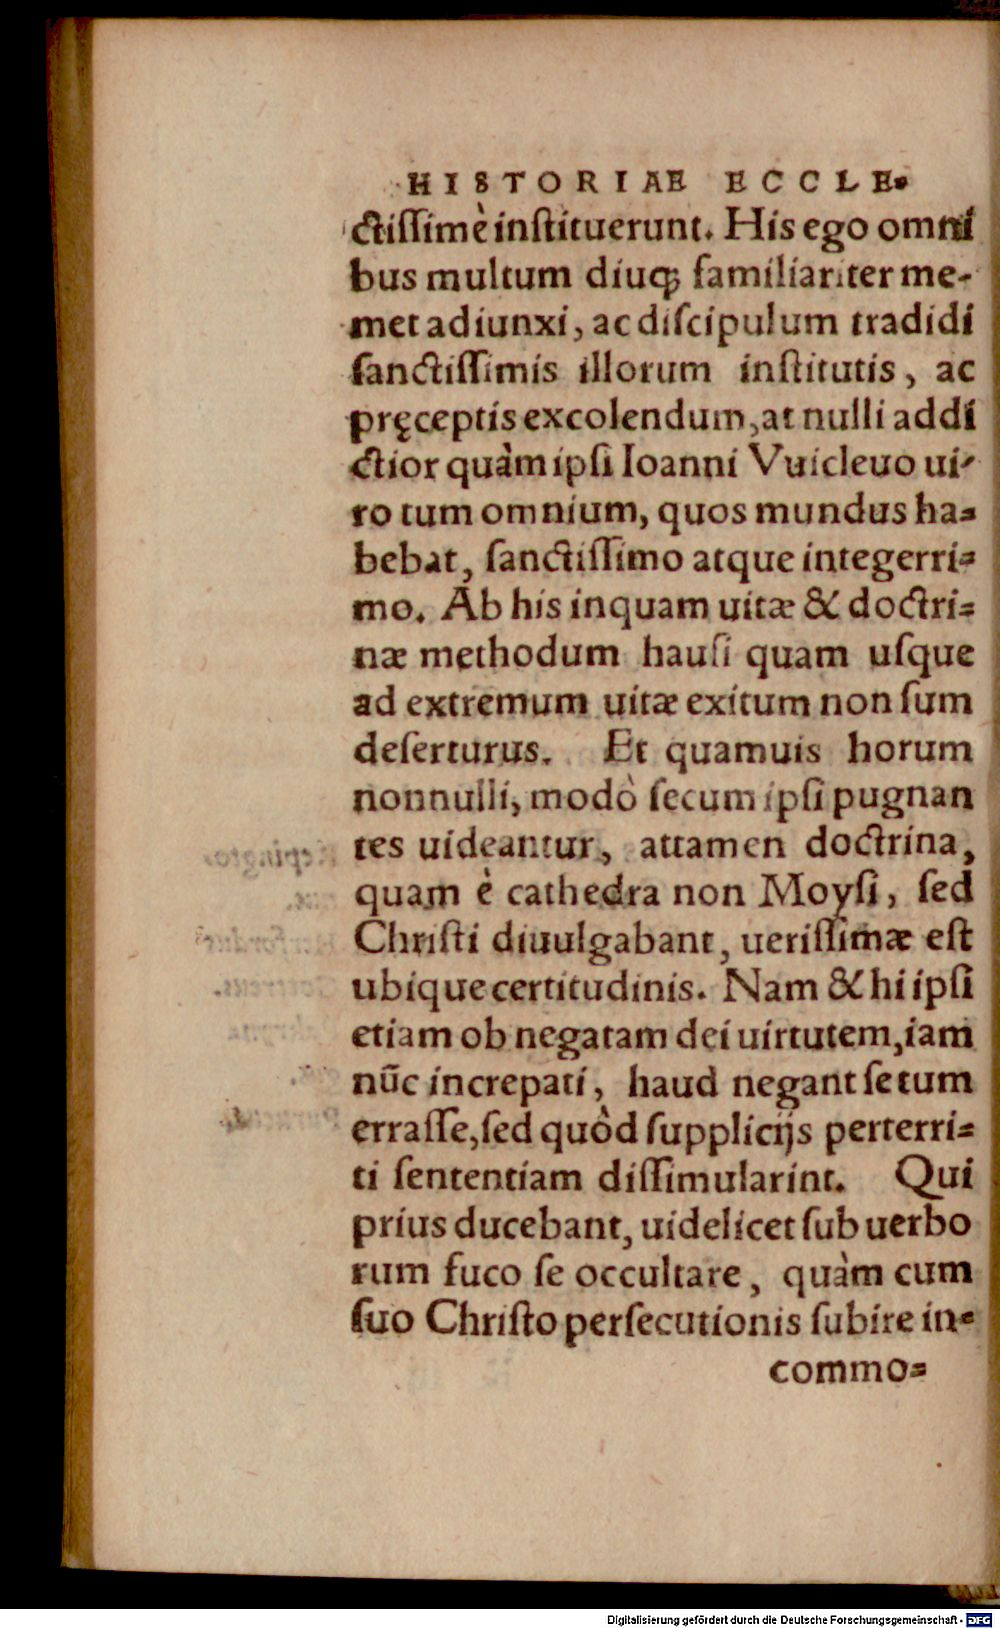 HISTORIAE ECCLE-
ctiſſimè inſtituerunt. His ego omni
bus multum diuq; familiariter me-
met adiunxi, ac diſcipulum tradidi
ſanctiſſimis illorum inſtitutis, ac
pręceptis excolendum, at nulli addi
ctior quàm ipſi Ioanni Vuicleuo ui-
ro tum omnium, quos mundus ha-
bebat, ſanctiſſimo atque integerri-
mo. Ab his inquam uitæ & doctri-
næ methodum hauſi quam uſque
ad extremum uitæ exitum non ſum
deſerturus. Et quamuis horum
nonnulli, modò ſecum ipſi pugnan
tes uideantur, attamen doctrina,
quam è cathedra non Moyſi, ſed
Chriſti diuulgabant, ueriſſimæ eſt
ubique certitudinis. Nam & hi ipſi
etiam ob negatam dei uirtutem, iam
nūc increpati, haud negant ſe tum
erraſſe, ſed quòd ſupplicijs perterri-
ti ſententiam diſſimularint. Qui
prius ducebant, uidelicet ſub uerbo
rum fuco ſe occultare, quàm cum
ſuo Chriſto perſecutionis ſubire in-
commo-
Digitalisierung gefördert durch die Deutsche Forschungsgemeinschaft - DFG